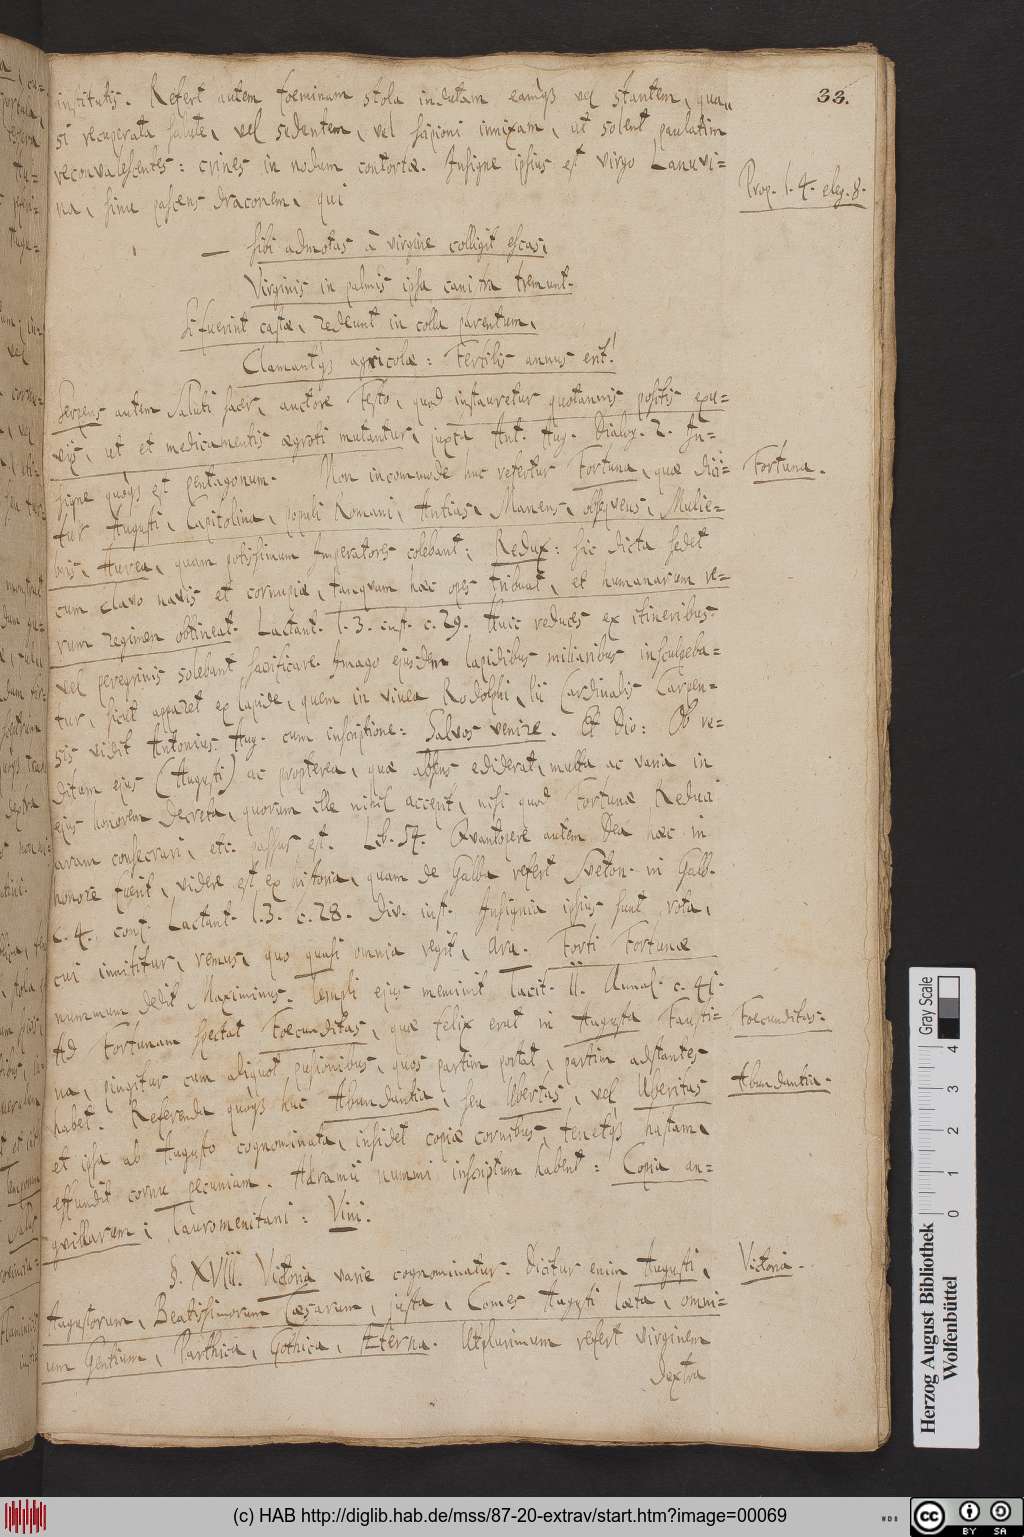 33.
institutis. Refert autem foeminam stola indutam eamqß vel stantem, qua
si recuperata salute, vel sedentem, vel scipioni innixam, ut solent paulatim
reconvalescentes: crines in nodum contortæ. Insigne ipsius est virgo Lanuvi=
na, sinu pascens draconem, qui
Prop. l. 4. eleg. 8.
— sibi admotas à virgine colligit escas,
Virginis in palmis ipsa canistra tremunt.
Si fuerint castæ, redeunt in colla parentum,
Clamantqß agricolæ: Fertilis annus erit!
Serpens autem Saluti sacer, auctore Festo, quod instauretur quotannis positis exu=
viis, ut et medicamentis ægroti mutantur, juxta Ant. Aug. Dialog. 2. In=
signe quoqß est pentagonum. Non incommode huc refertur Fortuna, quæ dici=
Fortuna.
tur Augusti, Capitolina, populi Romani, Antias, Manens, obsequens, Mulie=
bris, Aurea, quam potissimum Imperatores colebant; Redux: sic dicta sedet
cum clavo navis et cornupiæ, tanquam hæc opes tribuat, et humanarum re=
rum regimen obtineat. Lactant. l. 3. inst. c. 29. Huic reduces ex itineribus
vel peregrinis solebant sacrificare. Imago ejusdem lapidibus miliaribus insculpeba=
tur, sicut apparet ex lapide, quem in vinea Rodolphi, Pii Cardinalis Carpen=
sis vidit Antonius Aug. cum inscriptione: Salvos venire. Et Dio: Ob re=
ditum ejus (Augusti) ac propterea, quæ absens ediderat, multa ac varia in
ejus honorem decreta, quorum ille nihil accepit, nisi quod Fortunæ Reduci
aram consecrari, etc. passus est. Lib. 54. Quantopere autem Dea hæc in
honore fuerit, videre est ex historia, quam de Galba refert Sveton. in Galb.
c. 4. conf. Lactant. l. 3. c. 28. Div. inst. Insignia ipsius sunt rota,
cui innititur, remus, quo quasi omnia regit, Ara. Forti Fortunæ
nummum dedit Maximinus. Templi ejus meminit Tacit. II. Annal. c. 41.
Ad Fortunam spectat Foecunditas, quæ felix erat in Augusta Fausti=
Foecunditas.
na, pingitur cum aliquot pusionibus, quos partim portat, partim adstantes
habet. Referenda quoqß huc Abundantia, seu Ubertas, vel Uberitas
Abundantia.
et ipsa ab Augusto cognominata, insidet copiæ cornibus, tenetqß hastam,
effundit cornu pecuniam. Adramii nummi inscriptum habent: Copia an=
guillarum; Tauromenitani: Vini.
§. XVIII. Victoria varie cognominatur. Dicitur enim Augusti,
Victoria.
Augustorum, Beatissimorum Cæsarum, justa, Comes Augusti læta, omni=
um Gentium, Parthica, Gothica, Æterna. Utplurimum refert virginem
dextra
Gray Scale
0 1 2 3 4
Herzog August Bibliothek
Wolfenbüttel
(c) HAB http://diglib.hab.de/mss/87-20-extrav/start.htm?image=00069
cc BY SA